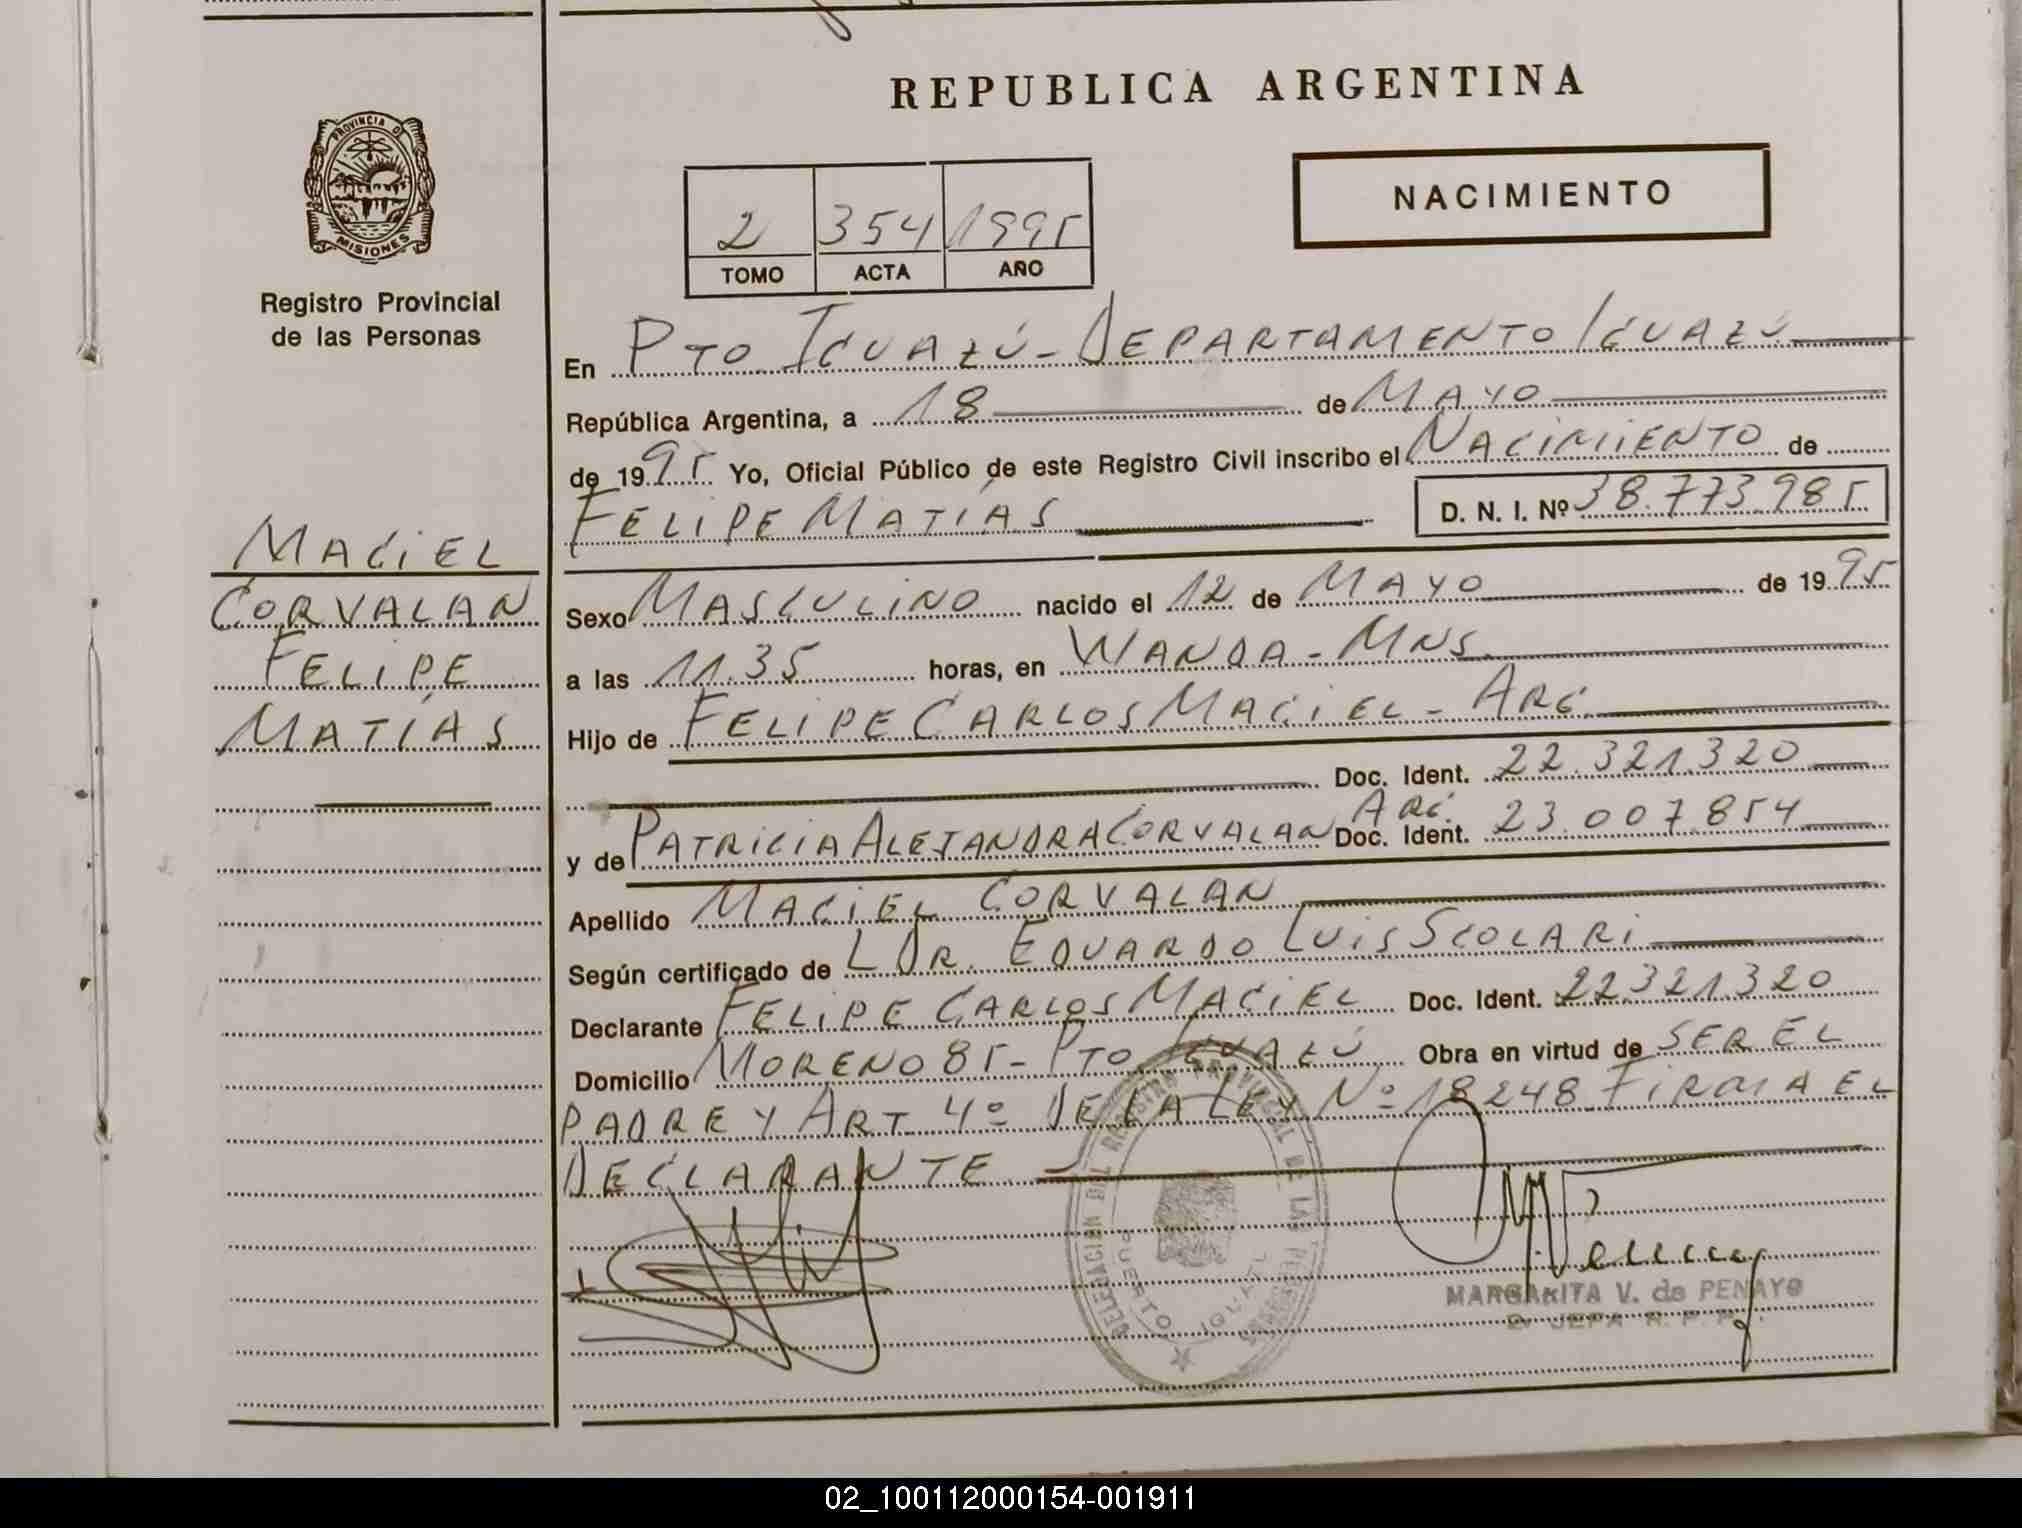 REPUBLICA ARGENTINA
PROVINCIA DE
MISIONES
Registro Provincial
de las Personas
NACIMIENTO
2 354 1995
TOMO ACTA AÑO
En PTO IGUAZÚ - DEPARTAMENTO IGUAZÚ
República Argentina, a 18 de MAYO
de 1995 Yo, Oficial Público de este Registro Civil inscribo el NACIMIENTO de
FELIPE MATÍAS D. N. I. Nº 38.773.985
MACIEL
CORVALAN
FELIPE
MATÍAS
Sexo MASCULINO nacido el 12 de MAYO de 1995
a las 11.35 horas, en WANDA - MNS.
Hijo de FELIPE CARLOS MACIEL - ARG.
Doc. Ident. 22.321.320
y de PATRICIA ALEJANDRA CORVALAN ARG. Doc. Ident. 23.007.854
Apellido MACIEL CORVALAN
Según certificado de L DR. EDUARDO LUIS SCOLARI
Declarante FELIPE CARLOS MACIEL Doc. Ident. 22.321.320
Domicilio MORENO 85 - PTO IGUAZÚ Obra en virtud de SER EL
PADRE Y ART. 4º DE LA LEY Nº 18248 FIRMA EL
DECLARANTE
DELEGACION DEL REGISTRO PROVINCIAL DE LAS PERSONAS
PUERTO IGUAZU
MARGARITA V. de PENAYO
2º JEFA R. P. P.
02_100112000154-001911